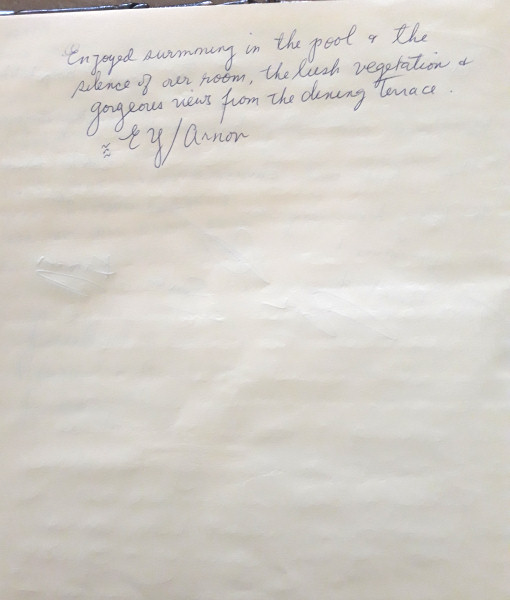 Enjoyed swimming in the pool & the
silence of our room, the lush vegetation &
gorgeous views from the dining terrace.
EY/Arnon